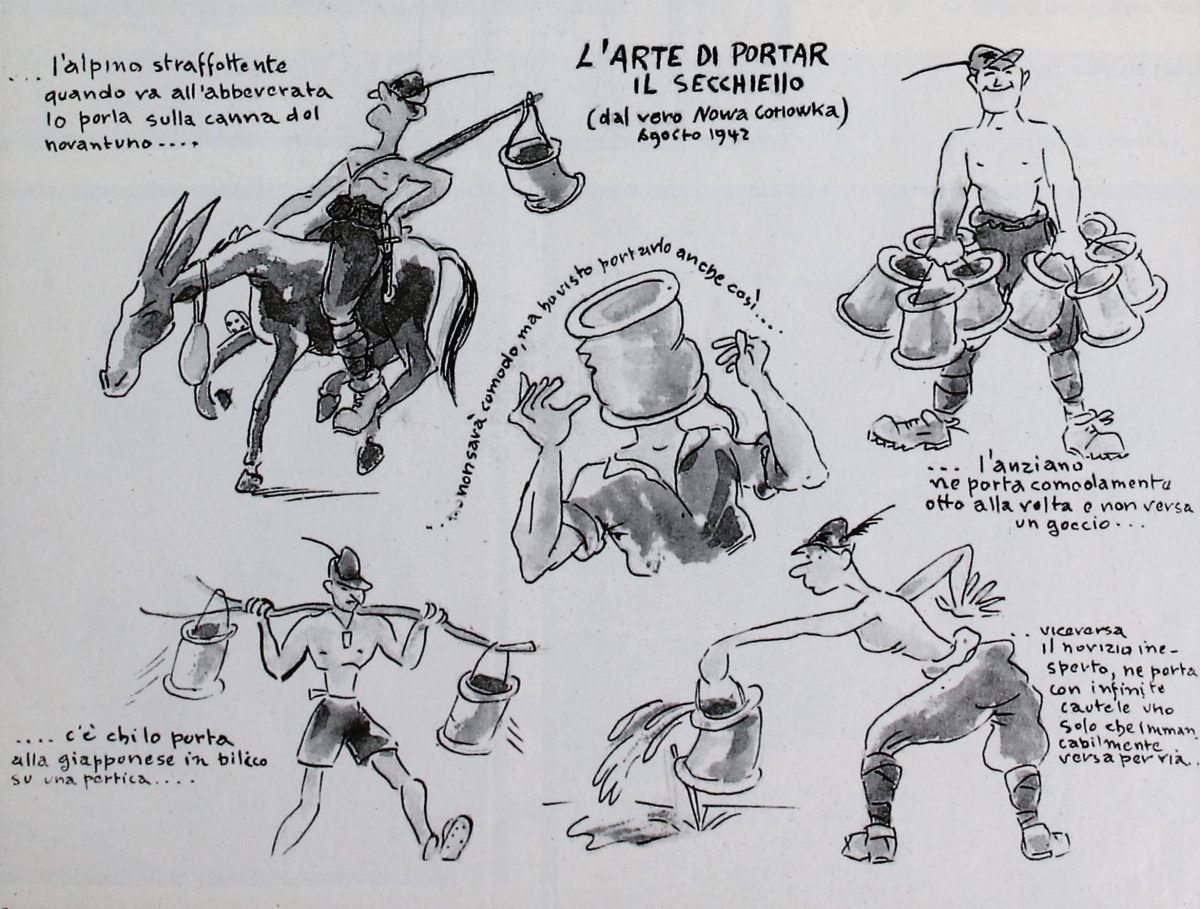 L'ARTE DI PORTAR
IL SECCHIELLO
(dal vero Nowa Gorlowka)
Agosto 1942
... l'alpino straffottente
quando va all'abbeverata
lo porta sulla canna del
novantuno....
... non sarà comodo, ma ho visto portarlo anche così....
... l'anziano
ne porta comodamente
otto alla volta e non versa
un goccio...
.... c'è chi lo porta
alla giapponese in bilico
su una pertica....
.. viceversa
il novizio ine-
sperto, ne porta
con infinite
cautele uno
solo che imman
cabilmente
versa per via..